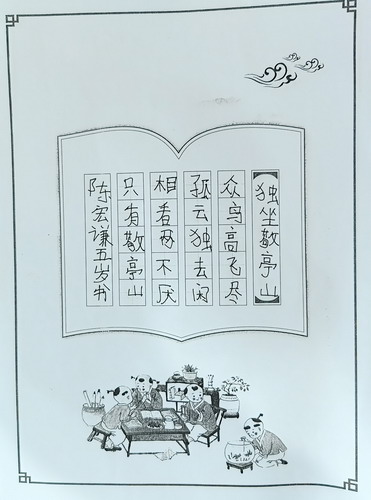 独坐敬亭山
众鸟高飞尽
孤云独去闲
相看两不厌
只有敬亭山
陈宏谦五岁书